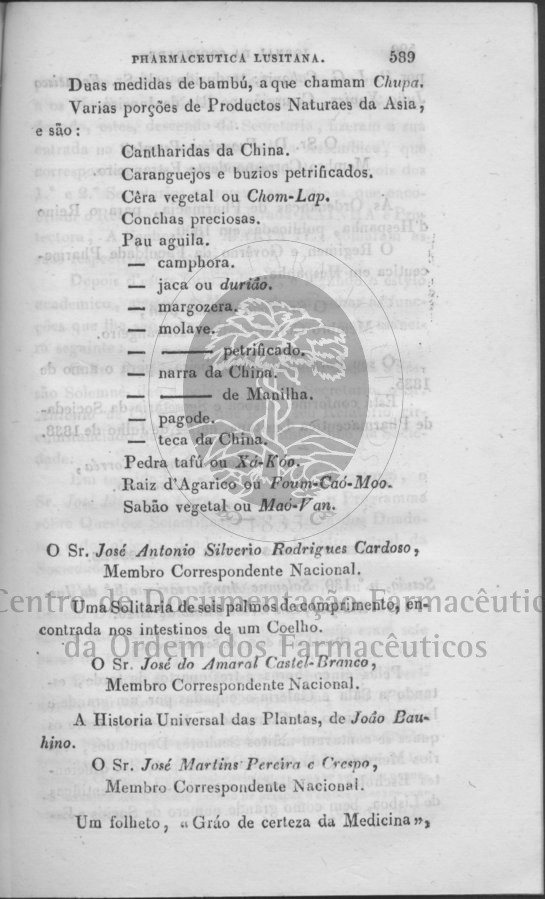 PHARMACEUTICA LUSITANA. 589
Duas medidas de bambú, a que chamam Chupa.
Varias porções de Productos Naturaes da Asia,
e são:
Cantharidas da China.
Caranguejos e buzios petrificados.
Cêra vegetal ou Chom-Lap.
Conchas preciosas.
Pau aguila.
— camphora.
— jaca ou durião.
— margozera.
— molave.
— —— petrificado.
— narra da China.
— —— de Manilha.
— pagode.
— teca da China.
Pedra tafú ou Xá-Kóo.
Raiz d'Agarico ou Foum-Caó-Moo.
Sabão vegetal ou Maó-Van.
O Sr. José Antonio Silverio Rodrigues Cardoso,
Membro Correspondente Nacional.
Uma Solitaria de seis palmos de comprimento, en-
Centro de Documentação Farmacêutic
contrada nos intestinos de um Coelho.
da Ordem dos Farmacêuticos
O Sr. José do Amaral Castel-Branco,
Membro Correspondente Nacional.
A Historia Universal das Plantas, de João Bau-
hino.
O Sr. José Martins Pereira e Crespo,
Membro Correspondente Nacional.
Um folheto, «Gráo de certeza da Medicina»,